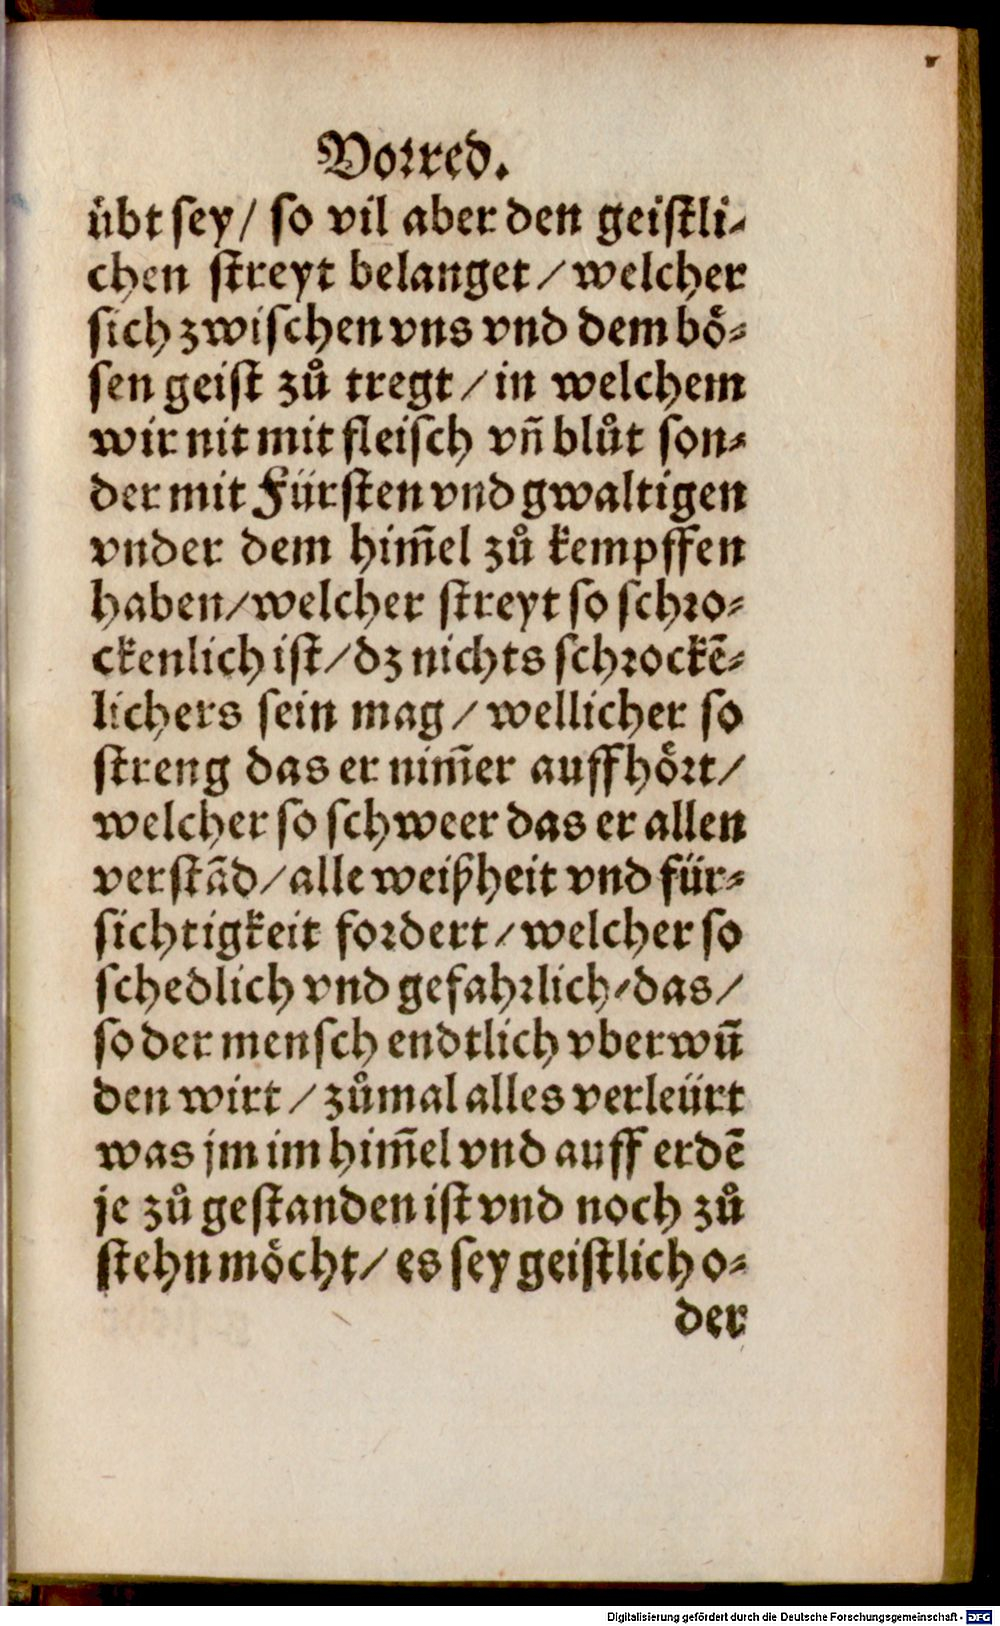 Vorred.
übt sey/ so vil aber den geistli-
chen streyt belanget/ welcher
sich zwischen vns vnd dem bö-
sen geist zů tregt/ in welchem
wir nit mit fleisch vñ blůt son-
der mit Fürsten vnd gwaltigen
vnder dem him̃el zů kempffen
haben/ welcher streyt so schro-
ckenlich ist/ dz nichts schrockẽ-
lichers sein mag/ wellicher so
streng das er nim̃er auffhört/
welcher so schweer das er allen
verstãd/ alle weißheit vnd für-
sichtigkeit fordert/ welcher so
schedlich vnd gefahrlich/ das/
so der mensch endtlich vberwũ
den wirt/ zůmal alles verleürt
was jm im him̃el vnd auff erdẽ
je zů gestanden ist vnd noch zů
stehn möcht/ es sey geistlich o-
der
Digitalisierung gefördert durch die Deutsche Forschungsgemeinschaft - DFG